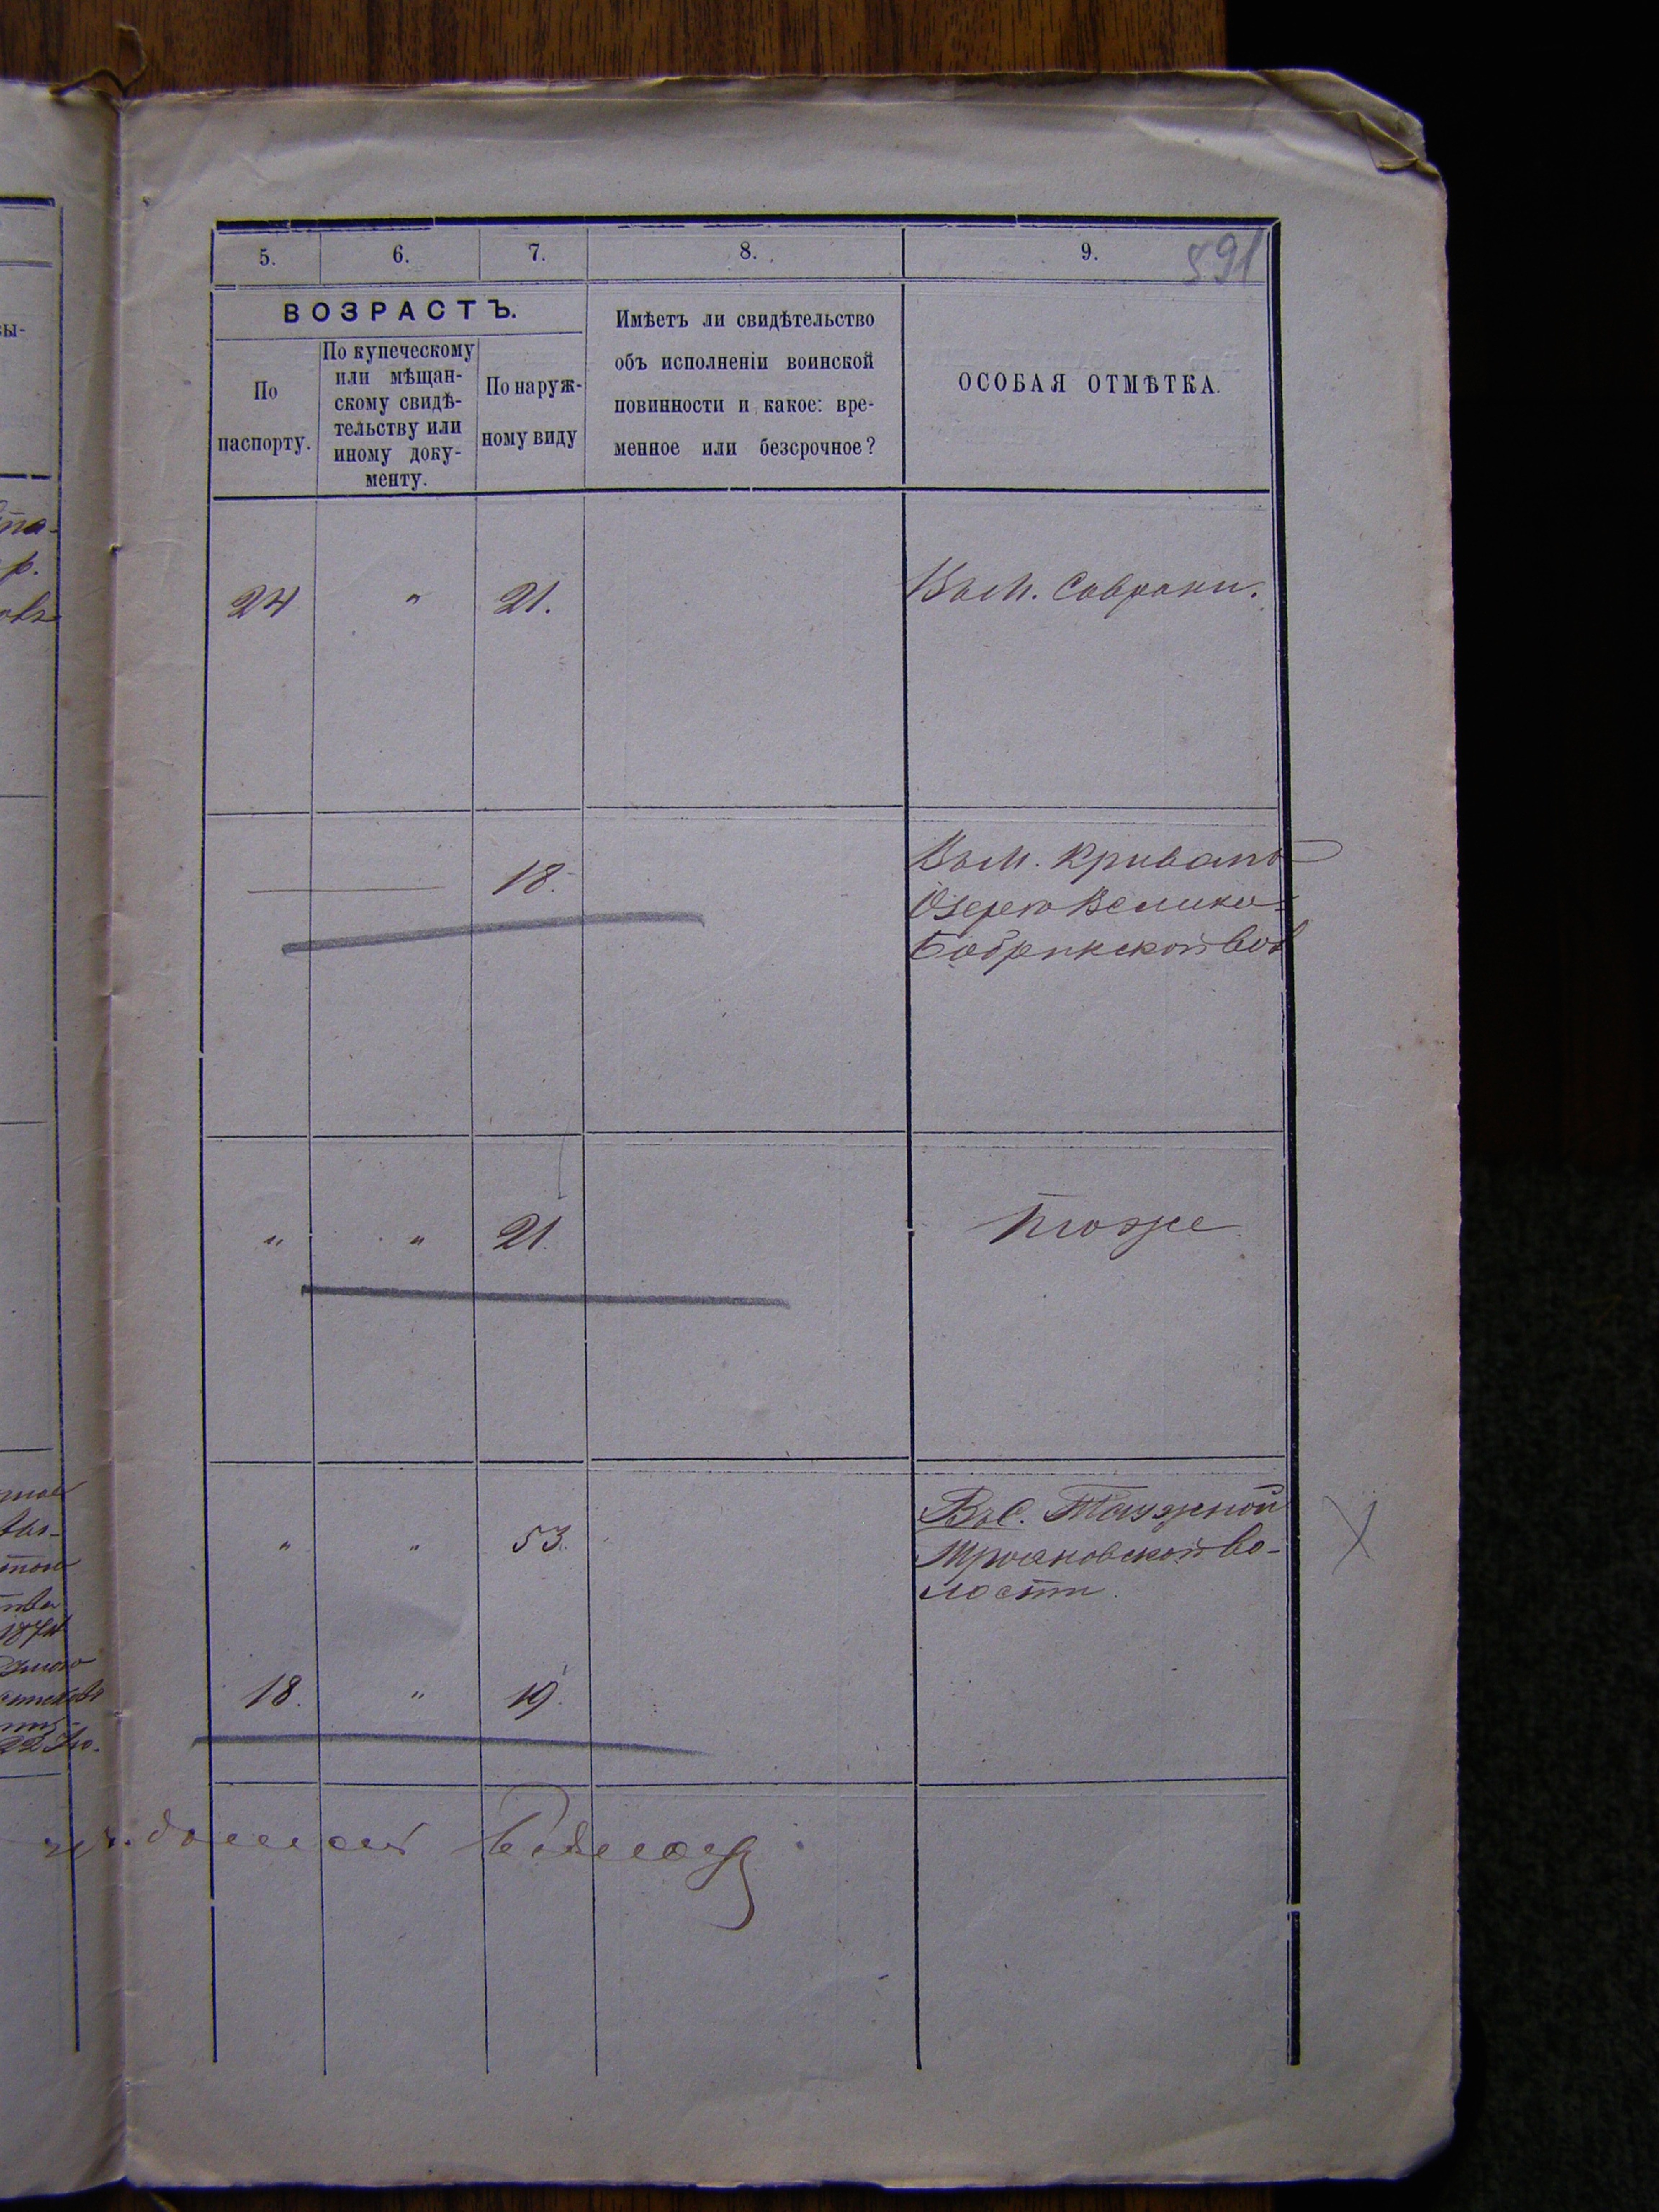 5. 6. 7. 8. 9. 591
ВОЗРАСТЪ.
По
паспорту.
По купеческому
или мѣщан-
скому свидѣ-
тельству или
иному доку-
менту.
По наруж-
ному виду
Имѣетъ ли свидѣтельство
объ исполненіи воинской
повинности и какое: вре-
менное или безсрочное?
ОСОБАЯ ОТМѢТКА.
24 " 21. Въ м. Саврани.
18. Въ м. Кривамъ
Озерѣ Велико-
Бобринской вол
" " 21. тоже
" " 53. Въ С. Таужной
Трояновской во-
лости.
18. " 19.